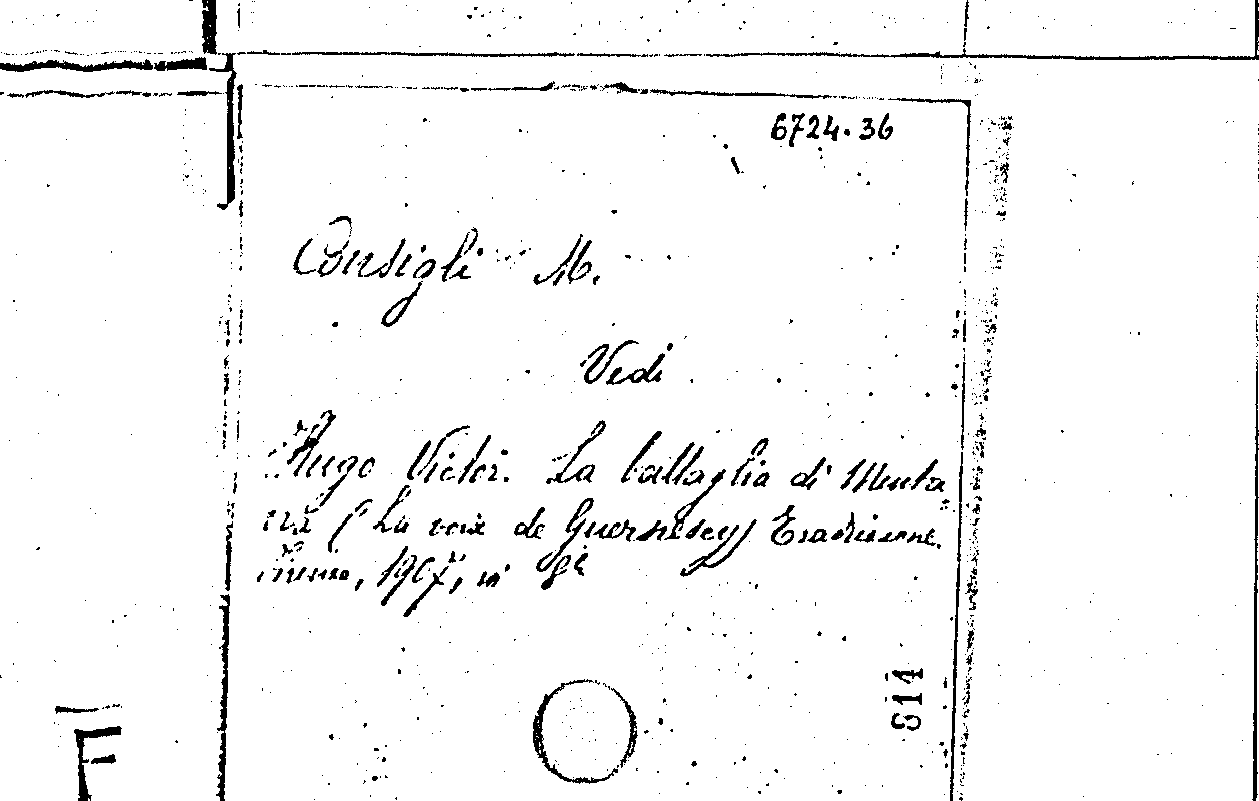 6724.36
Consigli M.
Vedi
Hugo Victor. La battaglia di Menta
na (La voix de Guernesey) Traduzione.
1907, in 8º
814
F